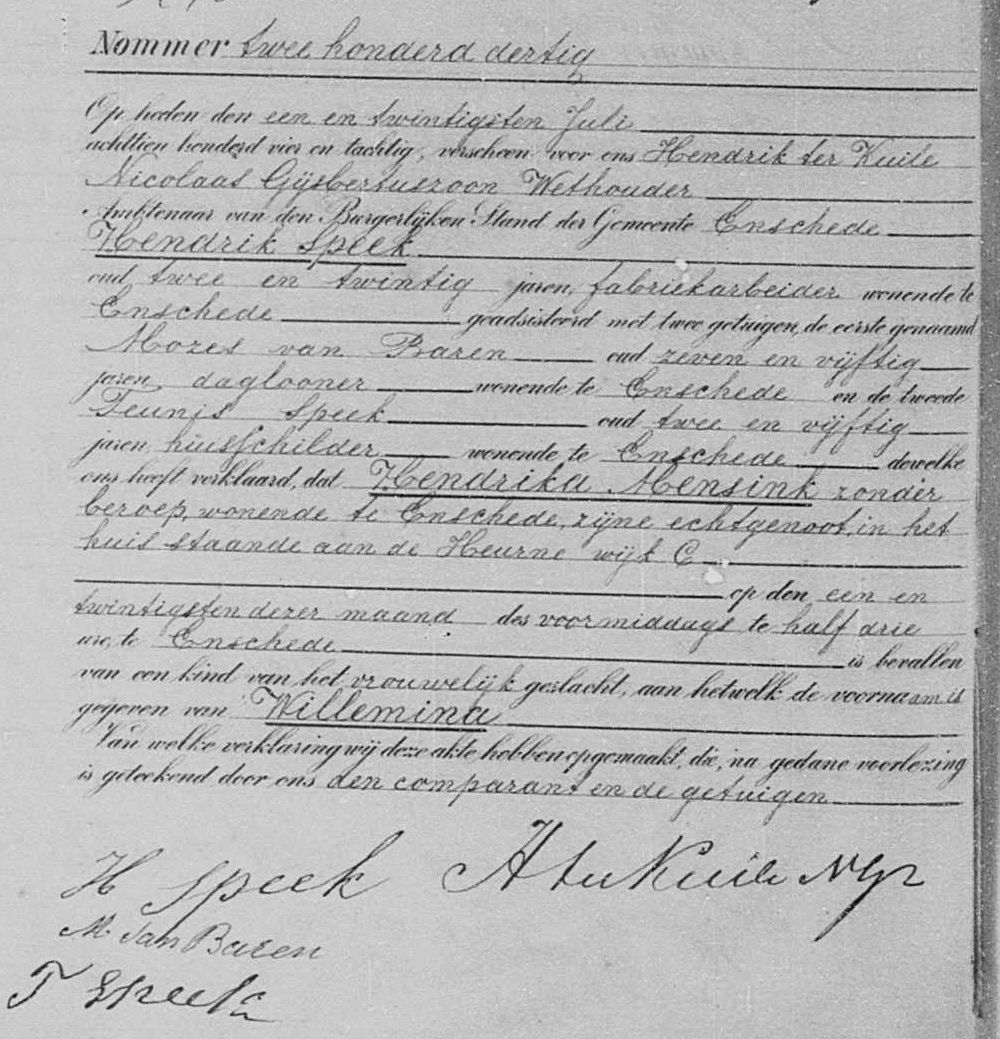 Nommer twee honderd dertig
Op heden den een en twintigsten Juli
achttien honderd vier en tachtig, verscheen voor ons Hendrik ter Kuile
Nicolaas Gijsbertuszoon Wethouder
Ambtenaar van den Burgerlijken Stand der Gemeente Enschede
Hendrik Speek
oud twee en twintig jaren, fabriekarbeider wonende te
Enschede geadsisteerd met twee getuigen, de eerste genaamd
Mozes van Baren oud zeven en vijftig
jaren, daglooner wonende te Enschede en de tweede
Teunis Speek oud twee en vijftig
jaren, huisschilder wonende te Enschede dewelke
ons heeft verklaard, dat Hendrika Mensink zonder
beroep, wonende te Enschede, zijne echtgenoot, in het
huis staande aan de Heurne wijk C
op den een en
twintigsten dezer maand des voormiddags te half drie
ure, te Enschede is bevallen
van een kind van het vrouwelijk geslacht, aan hetwelk de voornaam is
gegeven van Willemina
Van welke verklaring wij deze akte hebben opgemaakt, die, na gedane voorlezing
is geteekend door ons den comparant en de getuigen
H Speek H ter Kuile NGz
M. van Baren
T Speek